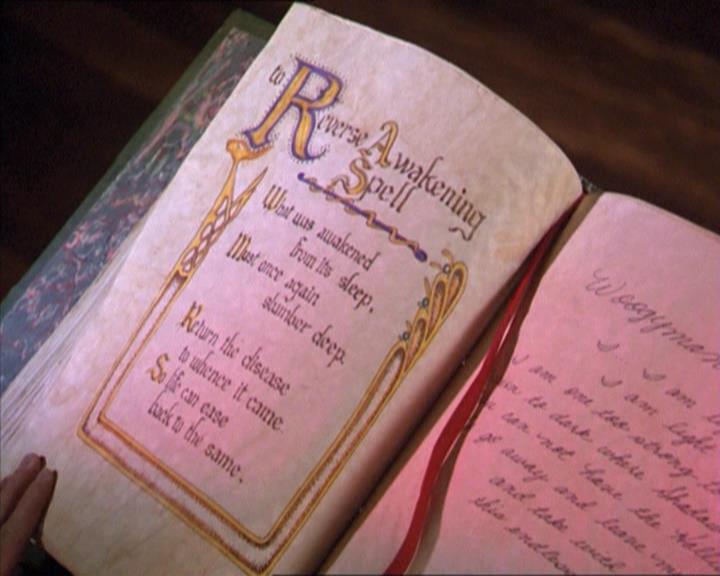 to Reverse Awakening
Spell
What was awakened
from its sleep,
Must once again
slumber deep.
Return the disease
to whence it came.
So life can ease
back to the same.
I am
I am light
I am one too strong
to dark where
can not have the
go away and leave
and take with
this